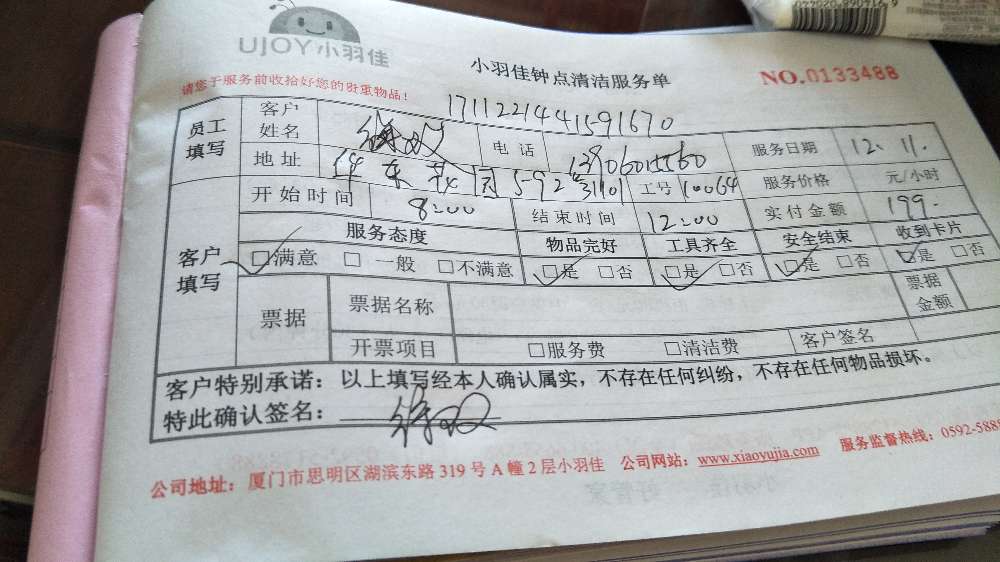 UJOY小羽佳
小羽佳钟点清洁服务单
NO.0133488
请您于服务前收拾好您的贵重物品!
1711221441591670
员工填写 客户姓名 电话 服务日期 12.11.
地址 华东花园 工号 10064 服务价格 元/小时
客户填写 开始时间 8:00 结束时间 12:00 实付金额 199.
服务态度 物品完好 工具齐全 安全结束 收到卡片
□满意 □一般 □不满意 □是 □否 □是 □否 □是 □否 □是 □否
票据 票据名称 票据金额
开票项目 □服务费 □清洁费 客户签名
客户特别承诺：以上填写经本人确认属实，不存在任何纠纷，不存在任何物品损坏。
特此确认签名：
公司地址：厦门市思明区湖滨东路319号A幢2层小羽佳 公司网站：www.xiaoyujia.com 服务监督热线：0592-5888